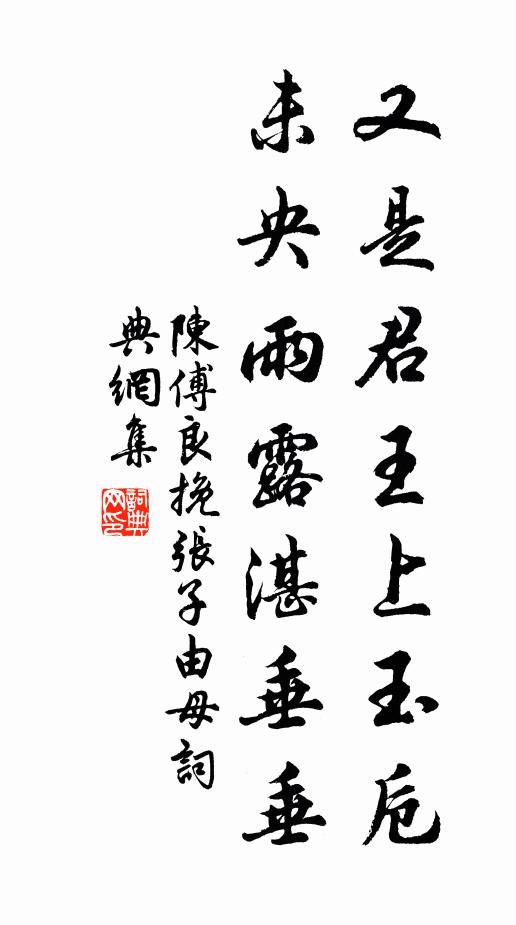 又是君王上玉卮
未央雨露湛垂垂
陳傅良挽張子由母詞
典網集
詞典网印